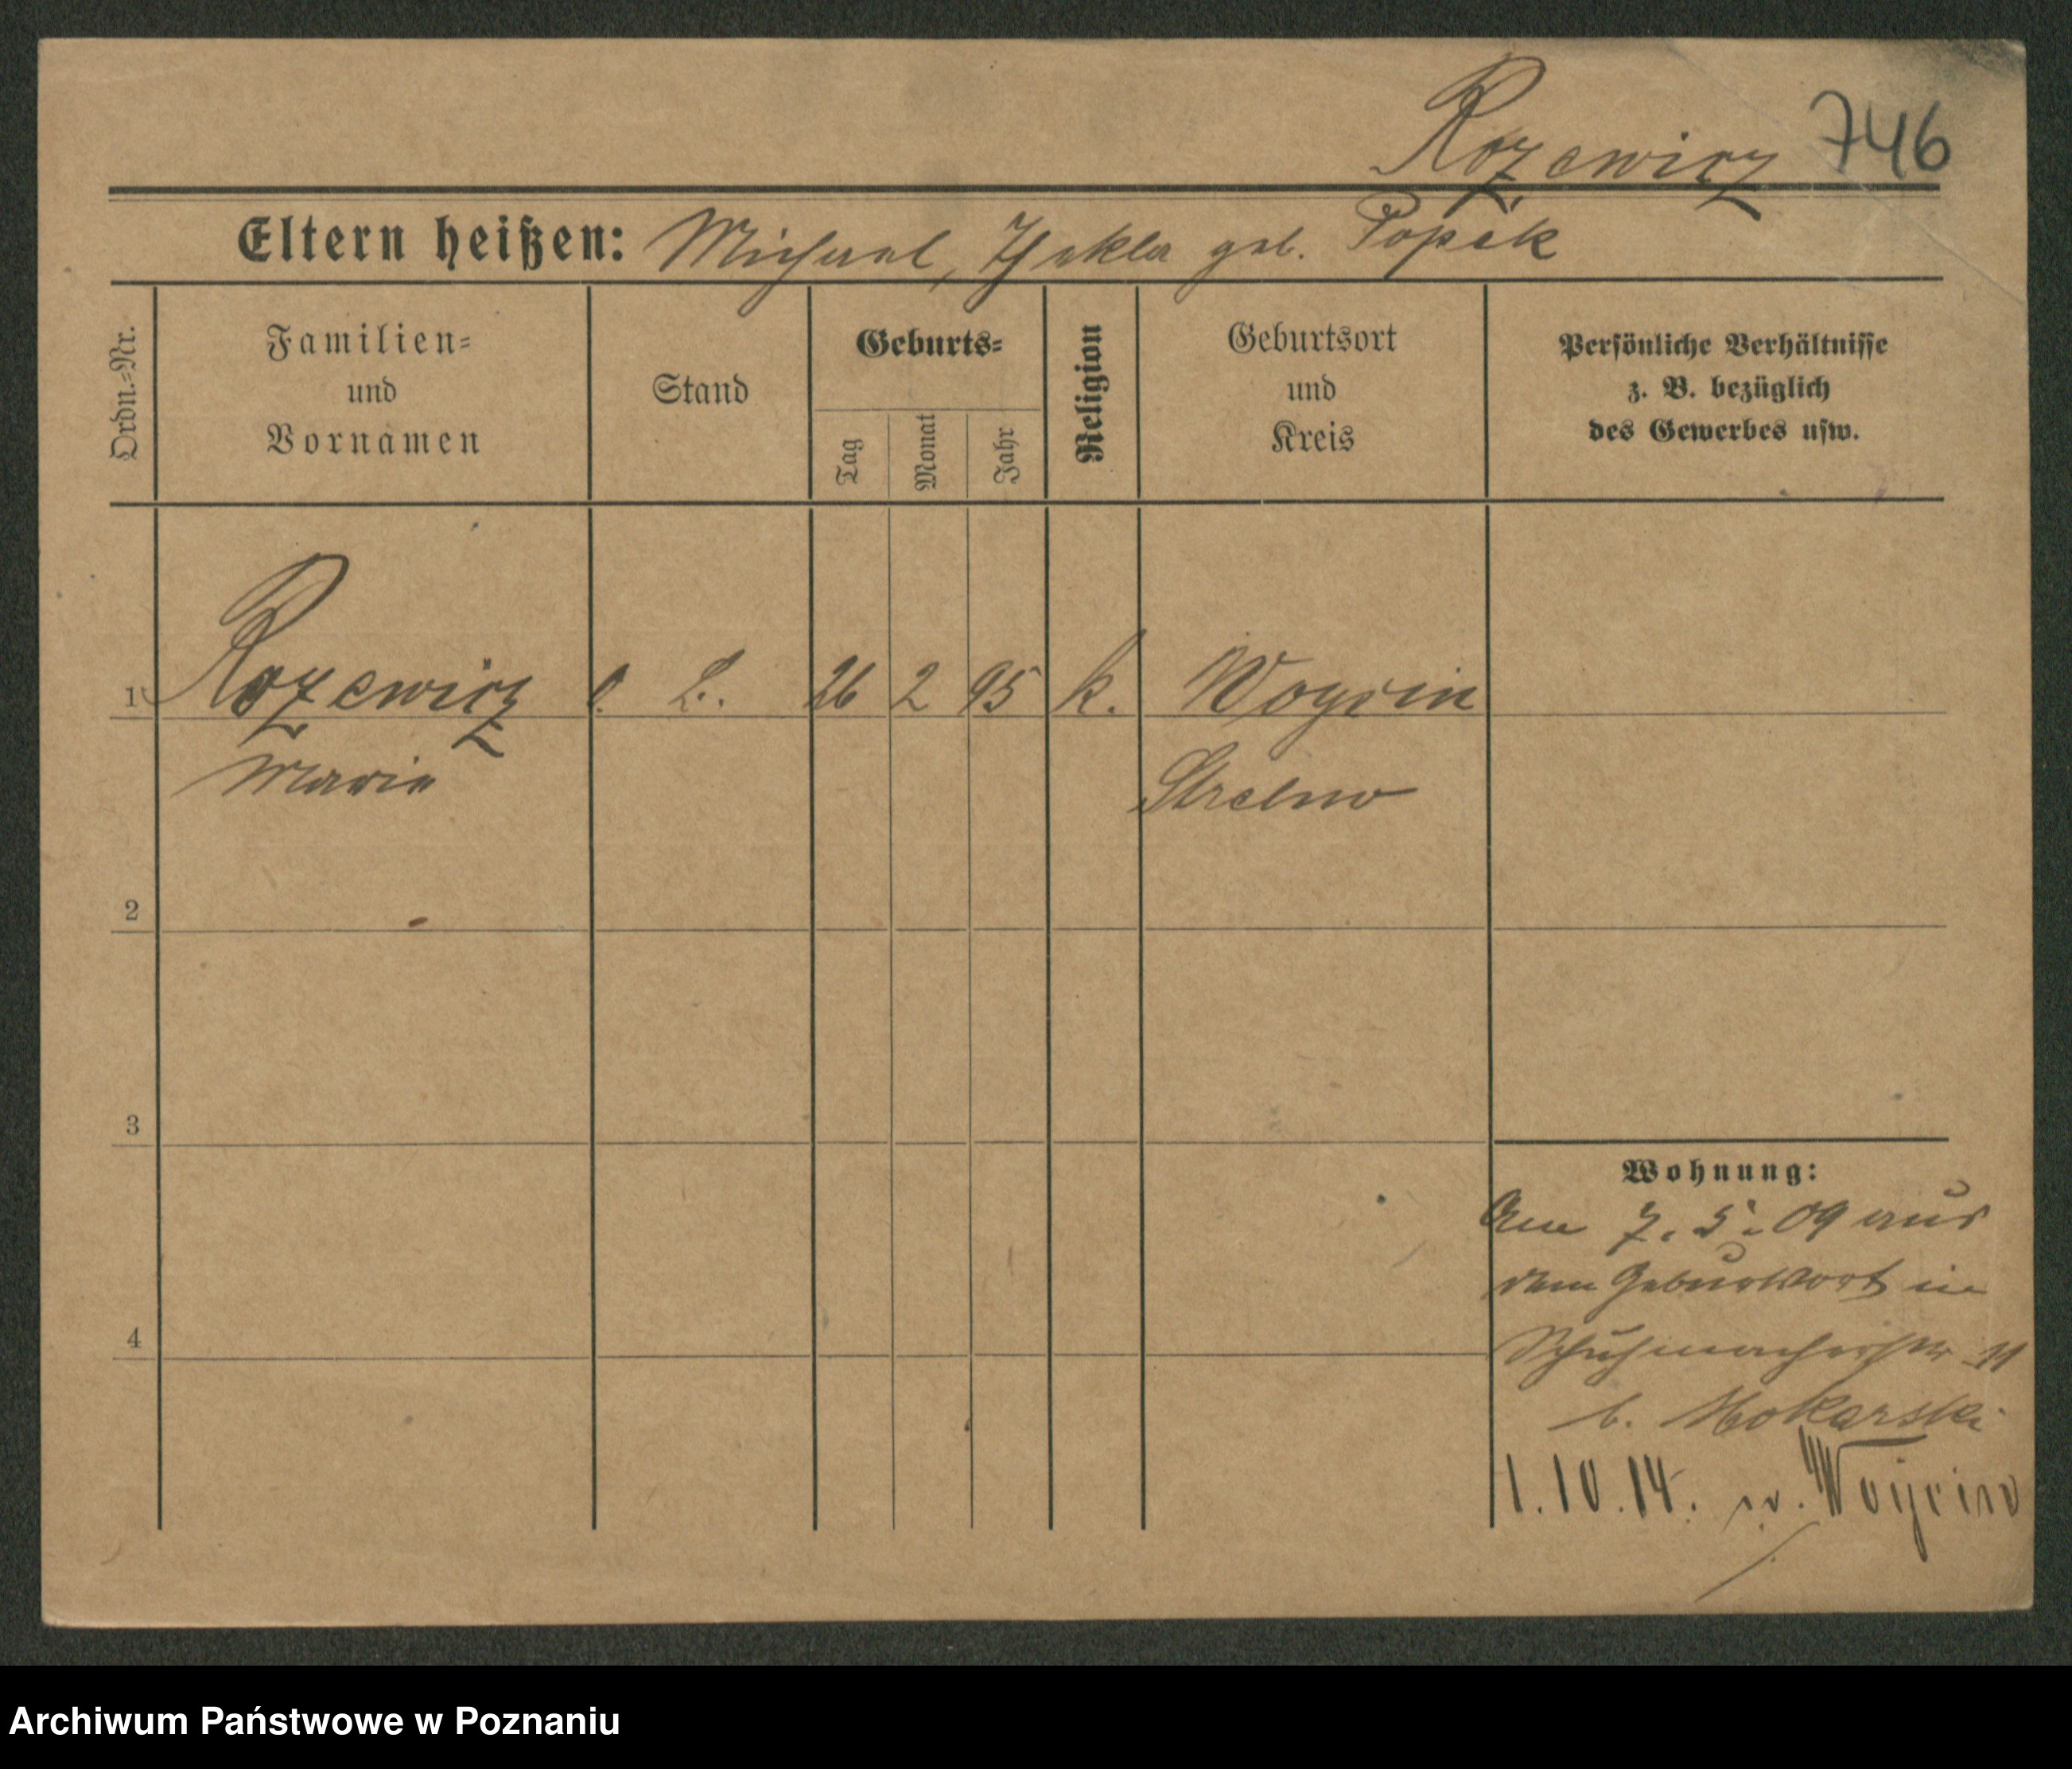 Rozewicz 746
Eltern heißen: Michael, Thekla geb. Popek
Ordn.-Nr.
Familien-
und
Vornamen
Stand
Geburts-
Tag
Monat
Jahr
Religion
Geburtsort
und
Kreis
Persönliche Verhältnisse
z. B. bezüglich
des Gewerbes usw.
1 Rozewicz o. L. 26 2 95 k. Woycin
Marie Strelno
2
3
Wohnung:
Am 7. 5. 09 aus
dem Geburtsort in
4
Schuhmacherstr 11
b. Mokarski
1.10.14. n. Woycin
Archiwum Państwowe w Poznaniu